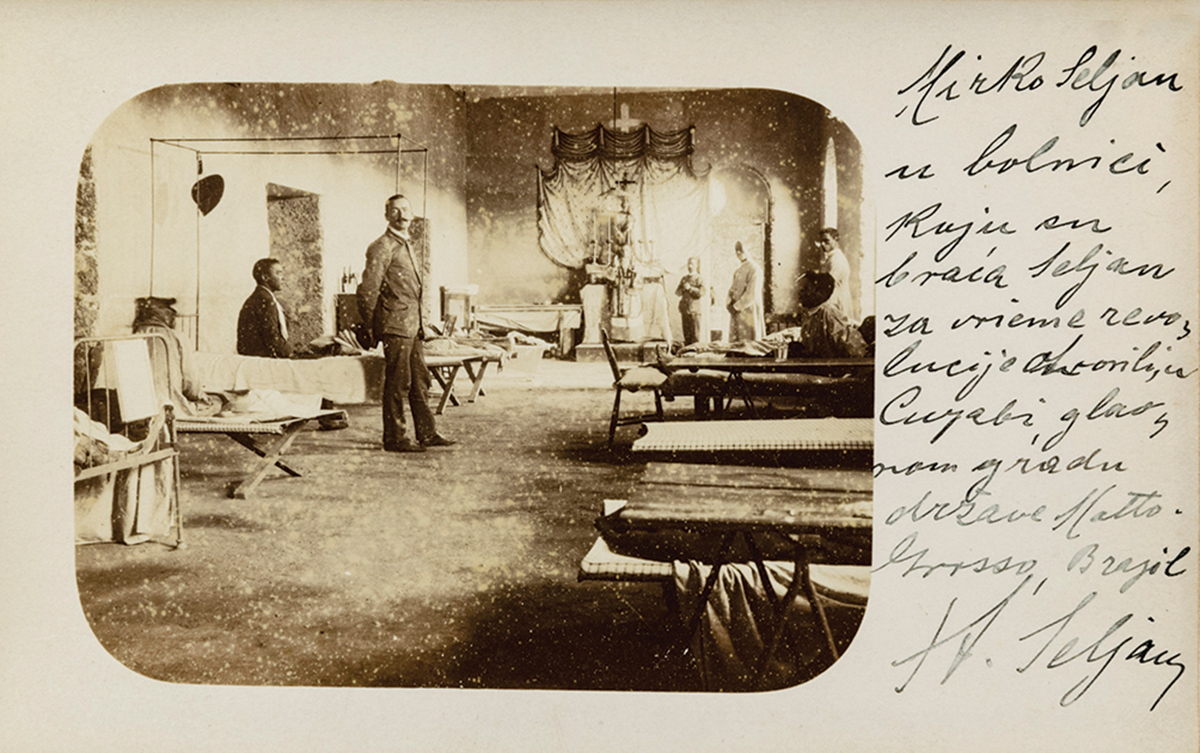 Mirko Seljan
u bolnici,
koju su
braća Seljan
za vrieme revo-
lucije otvorili, u
Cuyabi, glav-
nom gradu
države Matto-
Grosso, Brazil
S. Seljan